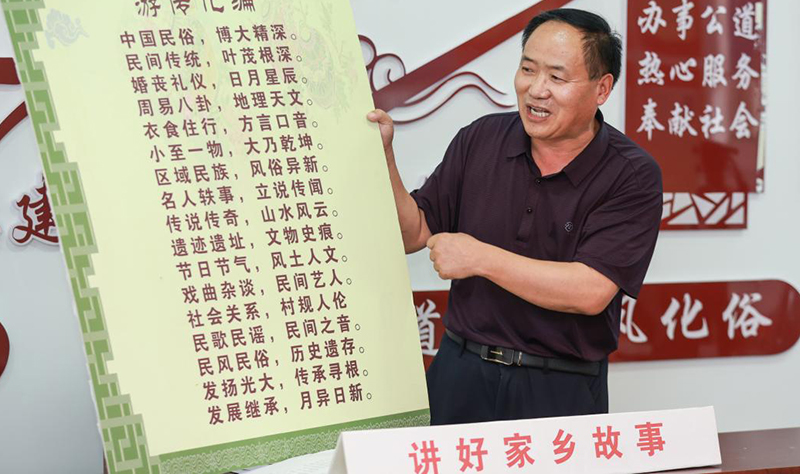 中国民俗，博大精深。
民间传统，叶茂根深。
婚丧礼仪，日月星辰。
周易八卦，地理天文。
衣食住行，方言口音。
小至一物，大乃乾坤。
区域民族，风俗异新。
名人轶事，立说传闻。
传说传奇，山水风云。
遗迹遗址，文物史痕。
节日节气，风土人文。
戏曲杂谈，民间艺人。
社会关系，村规人伦。
民歌民谣，民间之音。
民风民俗，历史遗存。
发扬光大，传承寻根。
发展继承，月异日新。
办事公道
热心服务
奉献社会
建
道
风化俗
讲好家乡故事